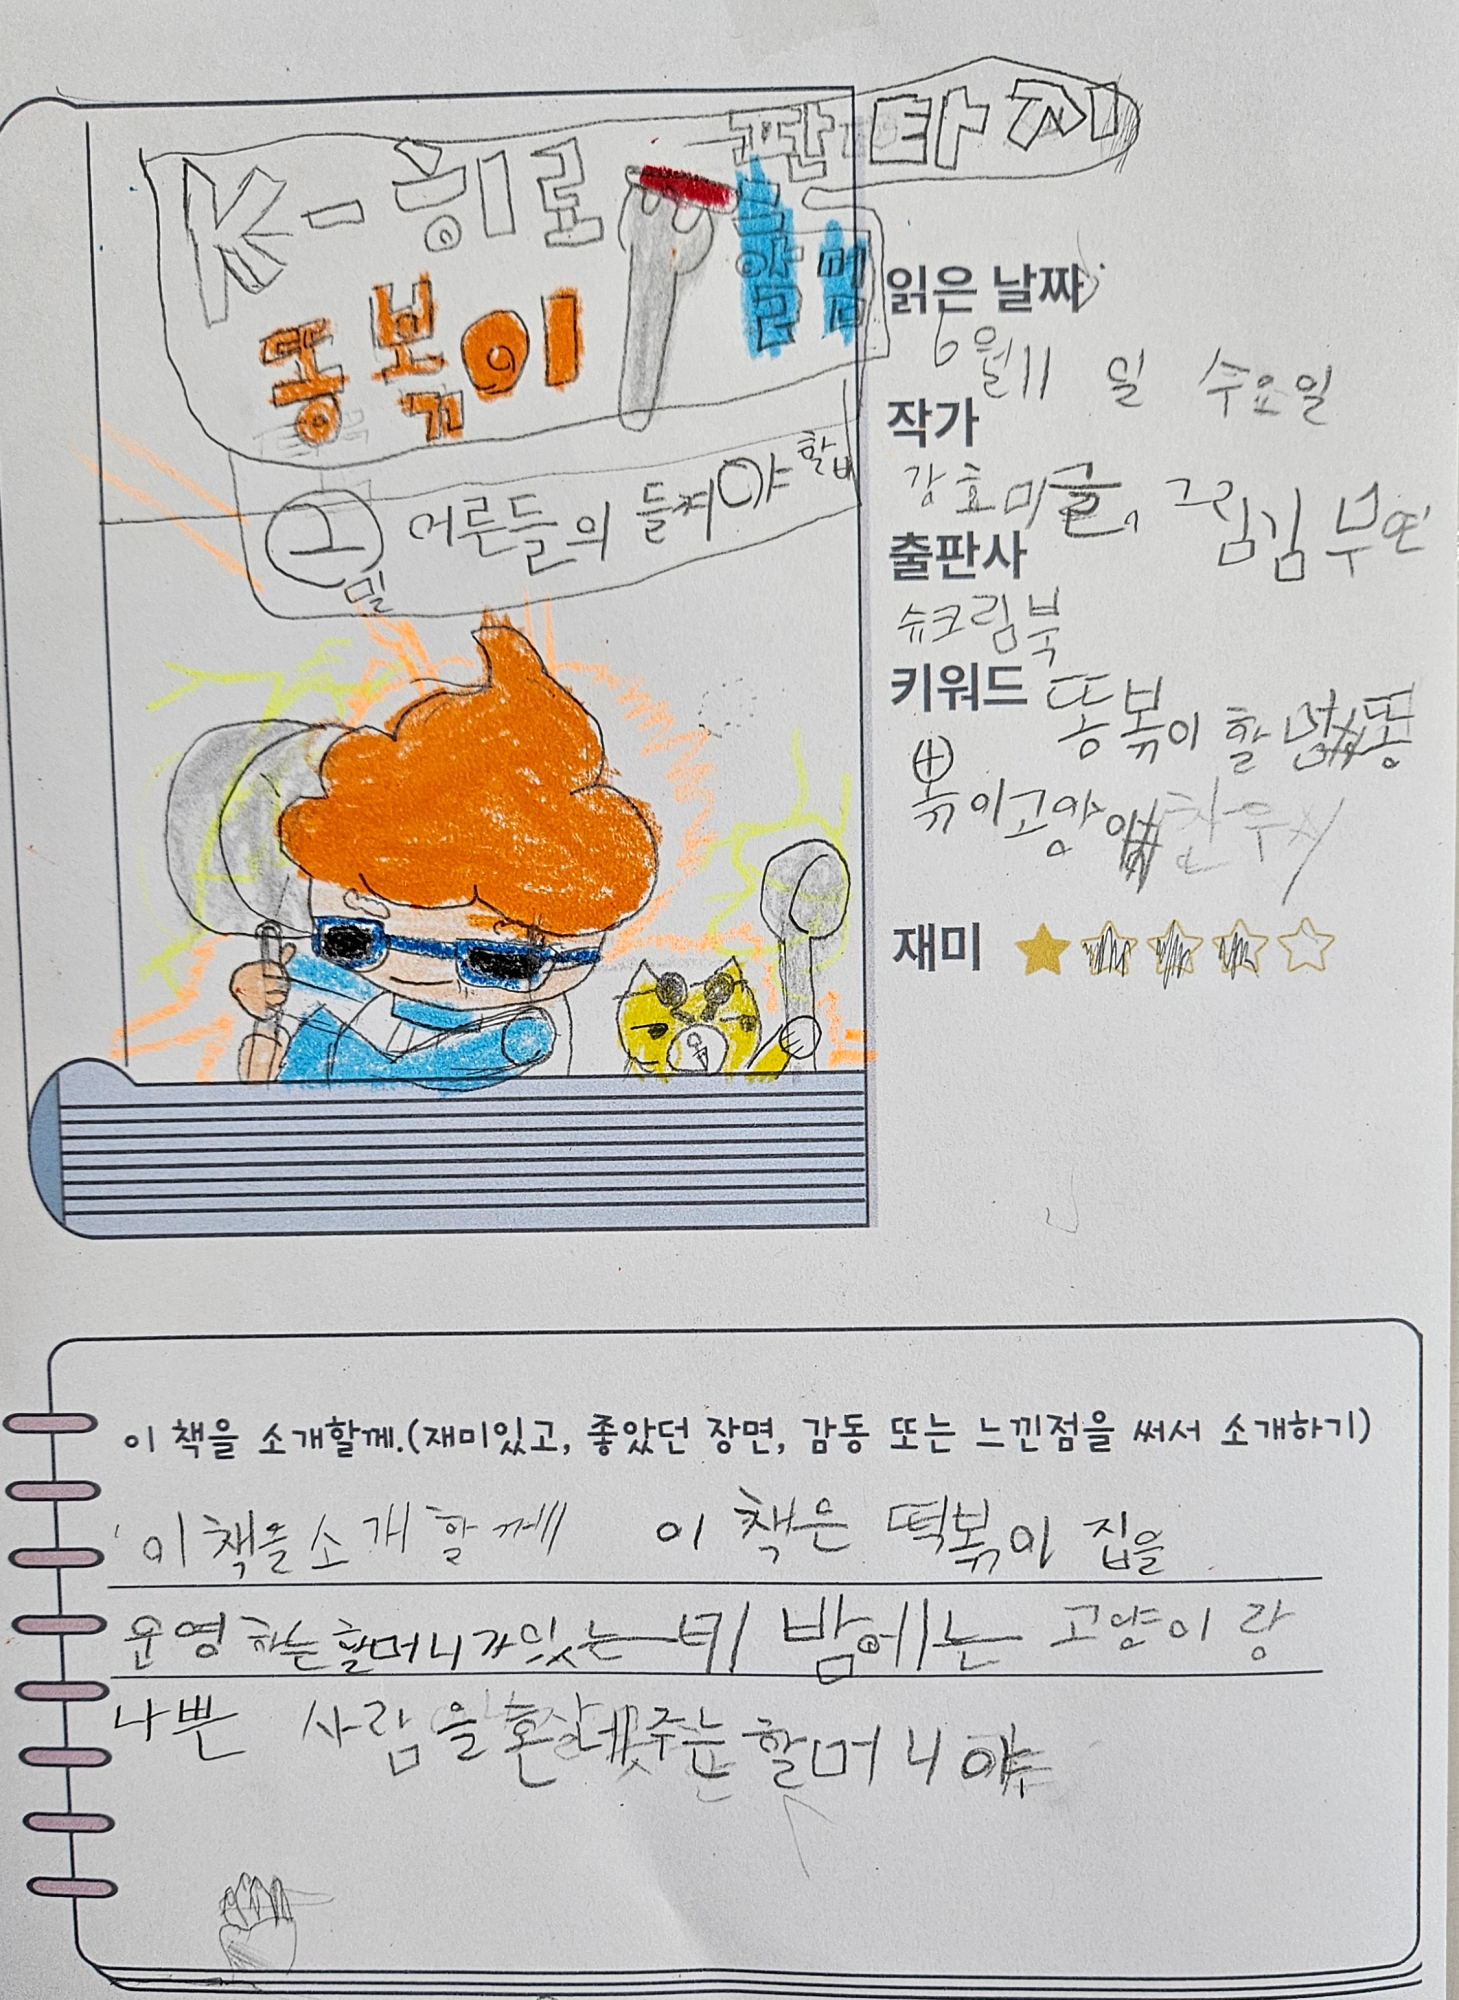 K-히로 판타지
똥볶이 할멈
어른들의 들져야
읽은 날짜
6월11일 수요일
작가
강효미글, 그림김무연
출판사
슈크림북
키워드
똥볶이 할멈 똥
볶이고양이 찬우
재미
이 책을 소개할께.(재미있고, 좋았던 장면, 감동 또는 느낀점을 써서 소개하기)
이 책을 소개할께 이 책은 떡볶이 집을
운영하는할머니가있는데 밤에는 고양이랑
나쁜 사람을 혼내주는 할머니야